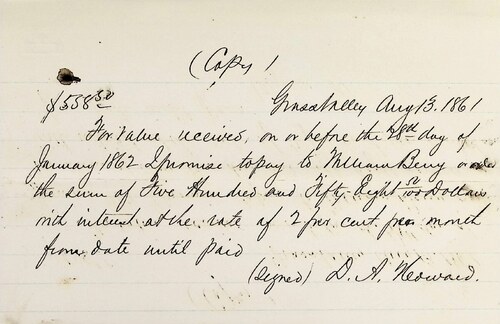 (Copy)
$558 50 Grass Valley Aug 13. 1861
For value received, on or before the 28th day of
January 1862 I promise to pay to William Berry or order
the sum of Five Hundred and Fifty Eight 50/100 Dollars
with interest at the rate of 2 per cent per month
from date until paid
(signed) D. A.